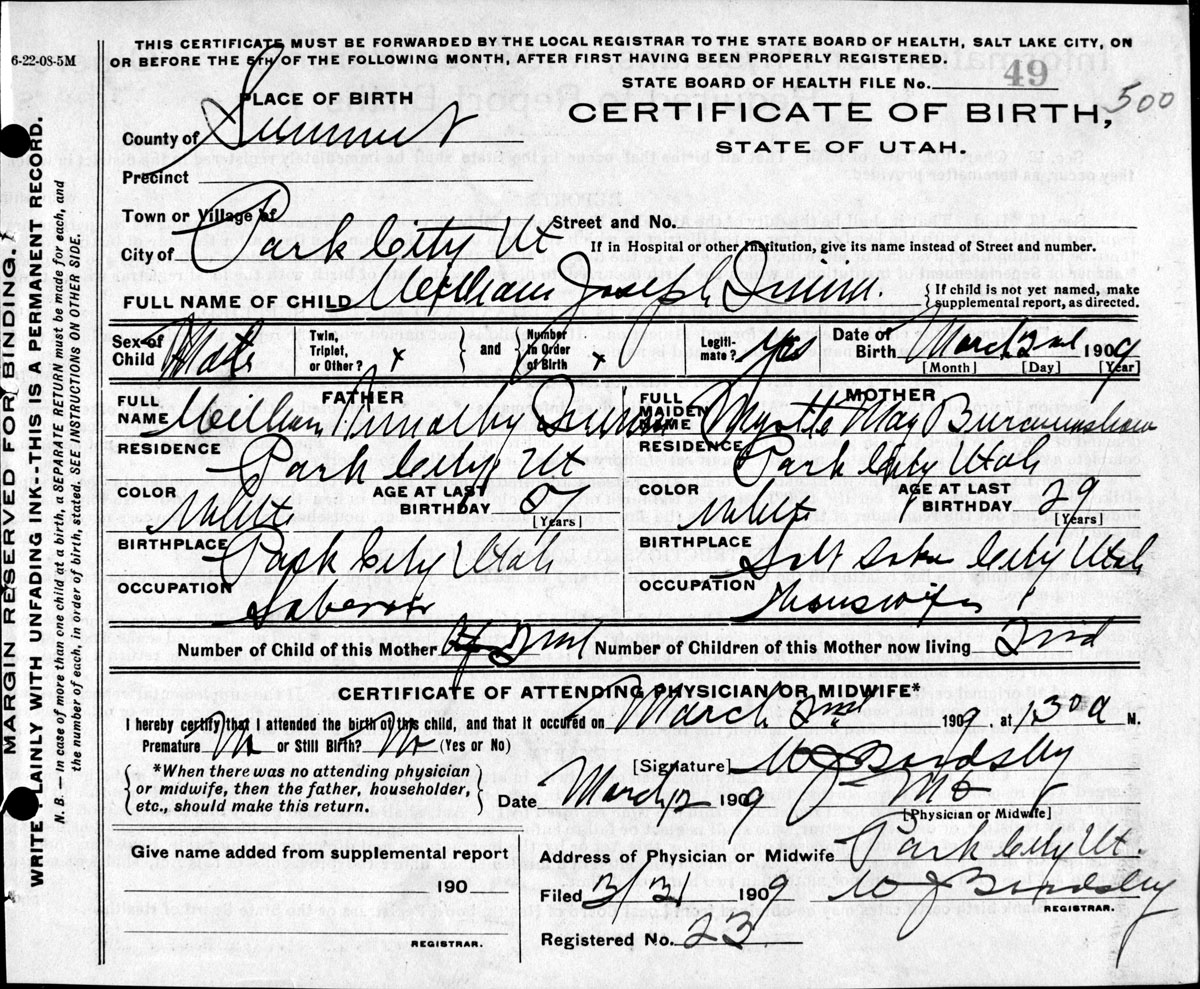 THIS CERTIFICATE MUST BE FORWARDED BY THE LOCAL REGISTRAR TO THE STATE BOARD OF HEALTH, SALT LAKE CITY, ON
6-22-08-5M
OR BEFORE THE 5TH OF THE FOLLOWING MONTH, AFTER FIRST HAVING BEEN PROPERLY REGISTERED.
STATE BOARD OF HEALTH FILE No. 49
PLACE OF BIRTH
CERTIFICATE OF BIRTH, 500
County of Summit
STATE OF UTAH.
Precinct
Town or Village of
Street and No.
City of Park City Ut
If in Hospital or other Institution, give its name instead of Street and number.
FULL NAME OF CHILD William Joseph Quinn. {If child is not yet named, make supplemental report, as directed.
Sex of Child Male Twin, Triplet, or Other? x } and { Number in Order of Birth x Legitimate? Yes Date of Birth March 2nd 1909
[Month] [Day] [Year]
FATHER
MOTHER
FULL NAME William Timothy Quinn FULL MAIDEN NAME May
RESIDENCE Park City, Ut RESIDENCE Park City Utah
COLOR White AGE AT LAST BIRTHDAY [Years] COLOR White AGE AT LAST BIRTHDAY 29 [Years]
BIRTHPLACE Park City Utah BIRTHPLACE Salt Lake City Utah
OCCUPATION Laborer OCCUPATION Housewife
Number of Child of this Mother 2nd Number of Children of this Mother now living 2nd
CERTIFICATE OF ATTENDING PHYSICIAN OR MIDWIFE*
I hereby certify that I attended the birth of this child, and that it occured on March 2nd 1909, at 1.30 a M.
Premature No or Still Birth? No (Yes or No)
[Signature] W J Bardsley
{*When there was no attending physician or midwife, then the father, householder, etc., should make this return.}
Date March 12 1909 MD
[Physician or Midwife]
Give name added from supplemental report
190
REGISTRAR.
Address of Physician or Midwife Park City Ut.
Filed 3/31 1909 W J Bardsley
REGISTRAR.
Registered No. 23
MARGIN RESERVED FOR BINDING.
WRITE PLAINLY WITH UNFADING INK--THIS IS A PERMANENT RECORD.
N. B.—In case of more than one child at a birth, a SEPARATE RETURN must be made for each, and
the number of each, in order of birth, stated. SEE INSTRUCTIONS ON OTHER SIDE.